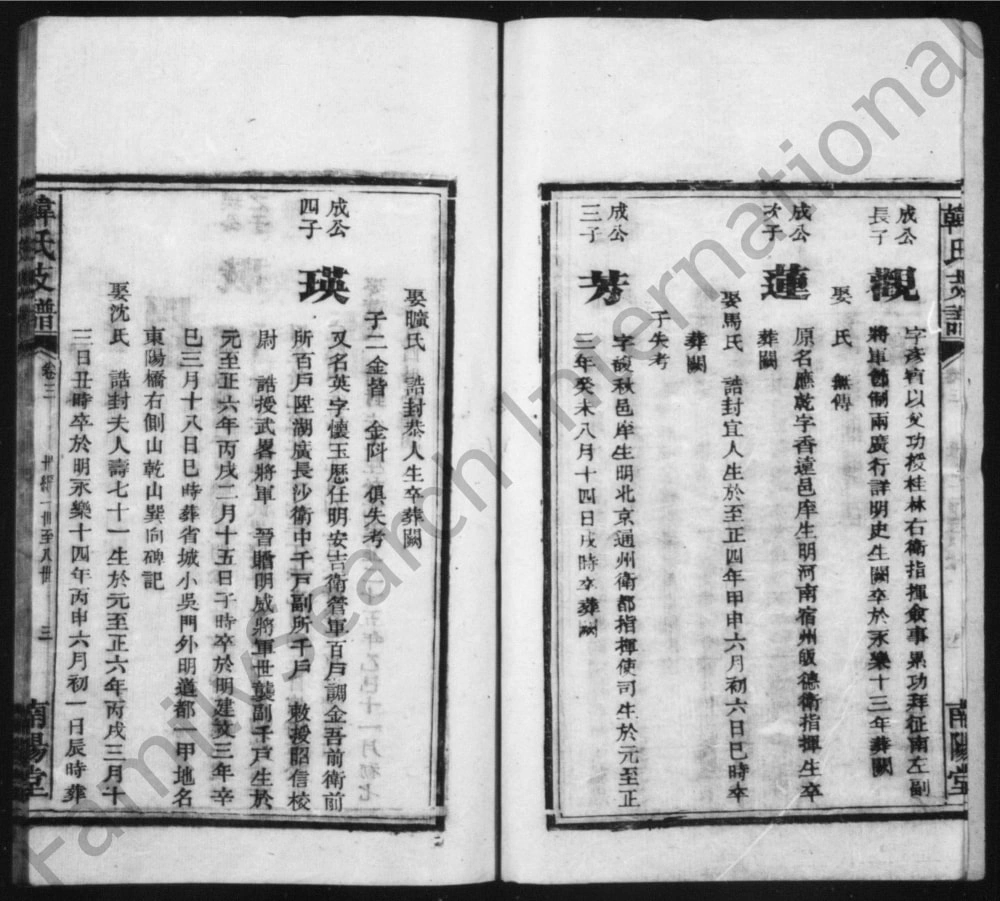 韓氏支譜
南陽堂
成公
長子
觀
字彥賓以父功授桂林右衛指揮僉事累功拜征南左副
將軍節制兩廣行詳明史生闕卒於永樂十三年葬闕
娶 氏 無傳
成公
次子
蓮
原名應乾字香遠邑庠生明河南宿州衛指揮生卒
葬闕
娶馬氏 誥封宜人生於至正四年甲申六月初六日巳時卒
葬闕
子失考
成公
三子
芳
字馥秋邑庠生明北京通州衛都指揮使司生於元至正
三年癸未八月十四日戌時卒葬闕
娶曠氏 誥封恭人生卒葬闕
子二金階 金科 俱失考
成公
四子
瑛
又名英字懷玉歷任明安吉衛管軍百戶調金吾前衛前
所百戶陞湖廣長沙衛中千戶副所千戶 敕援昭信校
尉 誥授武畧將軍 晉贈明威將軍世襲副千戶生於
元至正六年丙戌二月十五日子時卒於明建文三年辛
巳三月十八日巳時葬省城小吳門外明道都一甲地名
東陽橋右側山乾山巽向碑記
娶沈氏 誥封夫人壽七十一生於元至正六年丙戌三月十
三日丑時卒於明永樂十四年丙申六月初一日辰時葬
韓氏支譜
卷三
世一世至八世
三
南陽堂
FamilySearch International